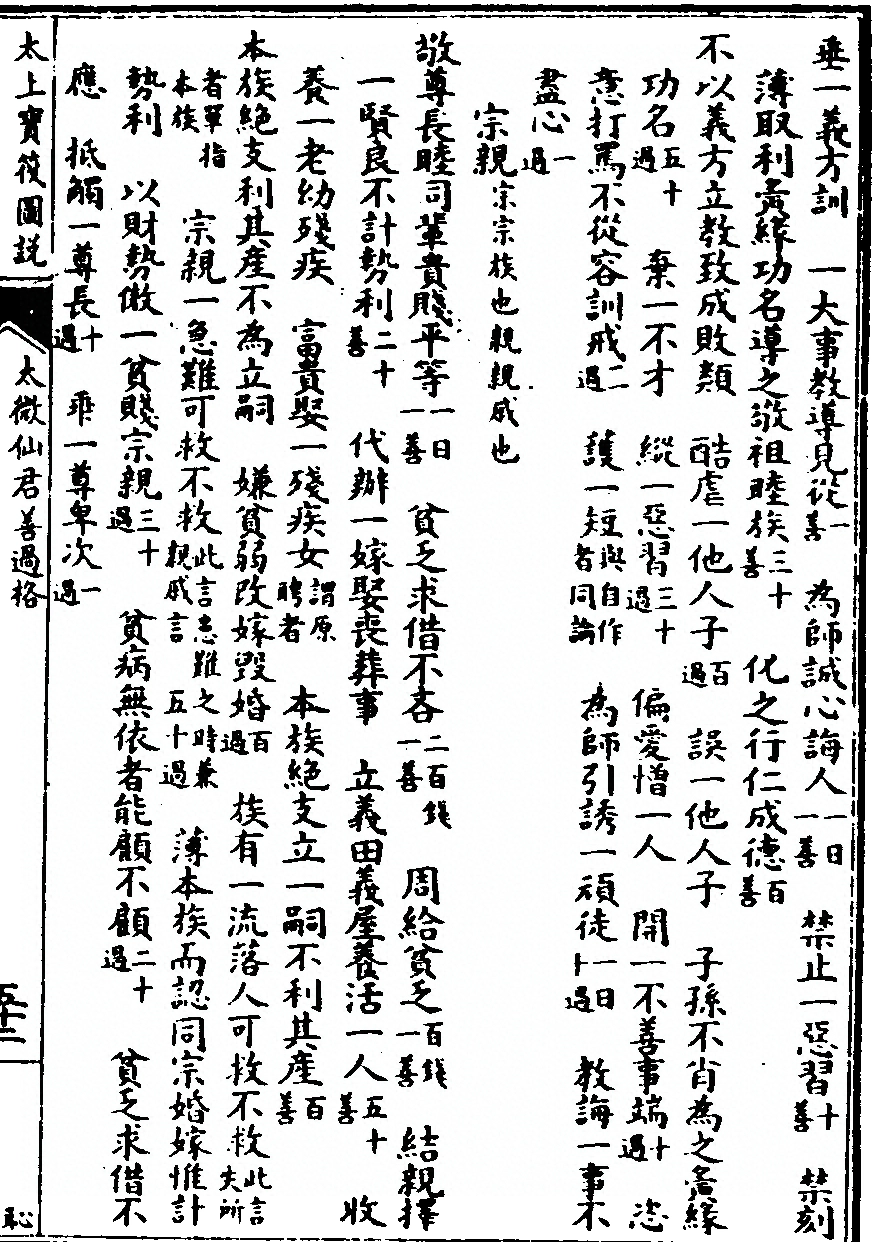 垂一義方訓 一大事教導見從一善 為師誠心誨人一日一善 禁止一惡習十善 禁刻
薄取利夤緣功名導之敬祖睦族三十善 化之行仁成德百善
不以義方立教致成敗類 酷虐一他人子百過 誤一他人子 子孫不肖為之夤緣
功名五十過 棄一不才 縱一惡習三十過 偏愛憎一人 開一不善事端十過 恣
意打罵不從容訓戒二過 護一短與自作者同論 為師引誘一頑徒一日十過 教誨一事不
盡心一過
宗親宗宗族也親親戚也
敬尊長睦同輩貴賤平等一日一善 貧乏求借不吝二百錢一善 周給貧乏百錢一善 結親擇
一賢良不計勢利二十善 代辦一嫁娶喪葬事 立義田義屋養活一人五十善 收
養一老幼殘疾 富貴娶一殘疾女謂原聘者 本族絕支立一嗣不利其產百善
本族絕支利其產不為立嗣 嫌貧弱改嫁毀婚百過 族有一流落人可救不救此言失所
者單指本族 宗親一急難可救不救此言患難之時兼親戚言五十過 薄本族而認同宗婚嫁惟計
勢利 以財勢傲一貧賤宗親三十過 貧病無依者能顧不顧二十過 貧乏求借不
應 抵觸一尊長十過 乖一尊卑次一過
太上寶筏圖說 太微仙君善過格 五十二 恥